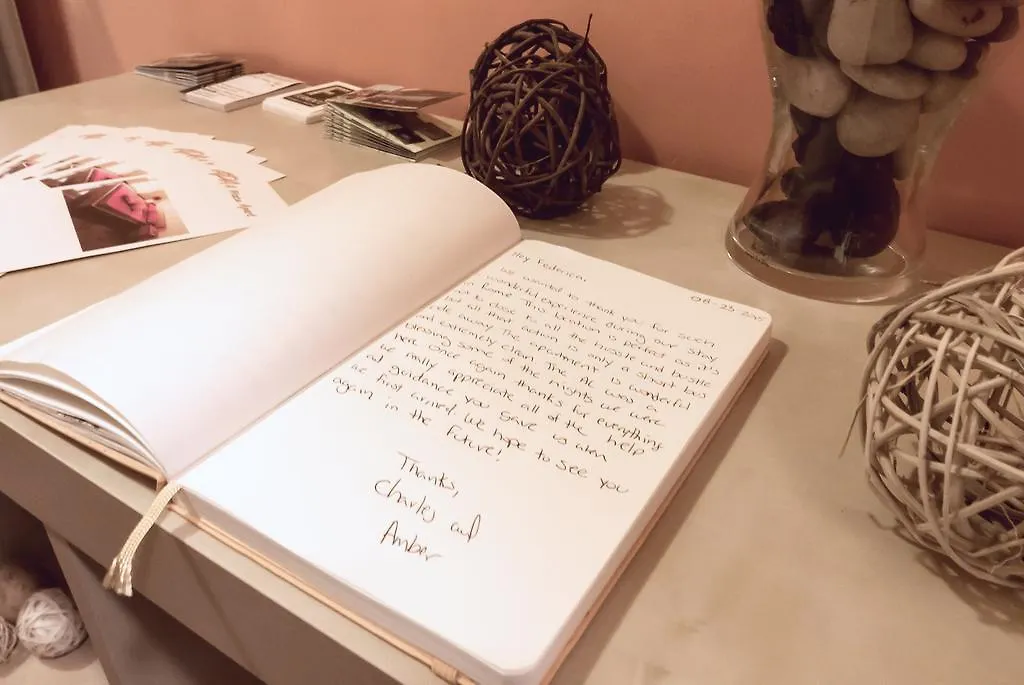 08-23-2015
Hey Federica,
We wanted to thank you for such
a wonderful experience during our stay
in Rome. This location is perfect as it's
not to close to all the hustle and bustle
but all that action is only a short bus
ride away. The apartment is wonderful
and extremely clean. The AC was a
blessing some of the nights we were
here. Once again thanks for everything
we really appreciate all of the help
and guidance you gave us when
we first arrived. We hope to see you
again in the future!
Thanks,
Charles and
Amber